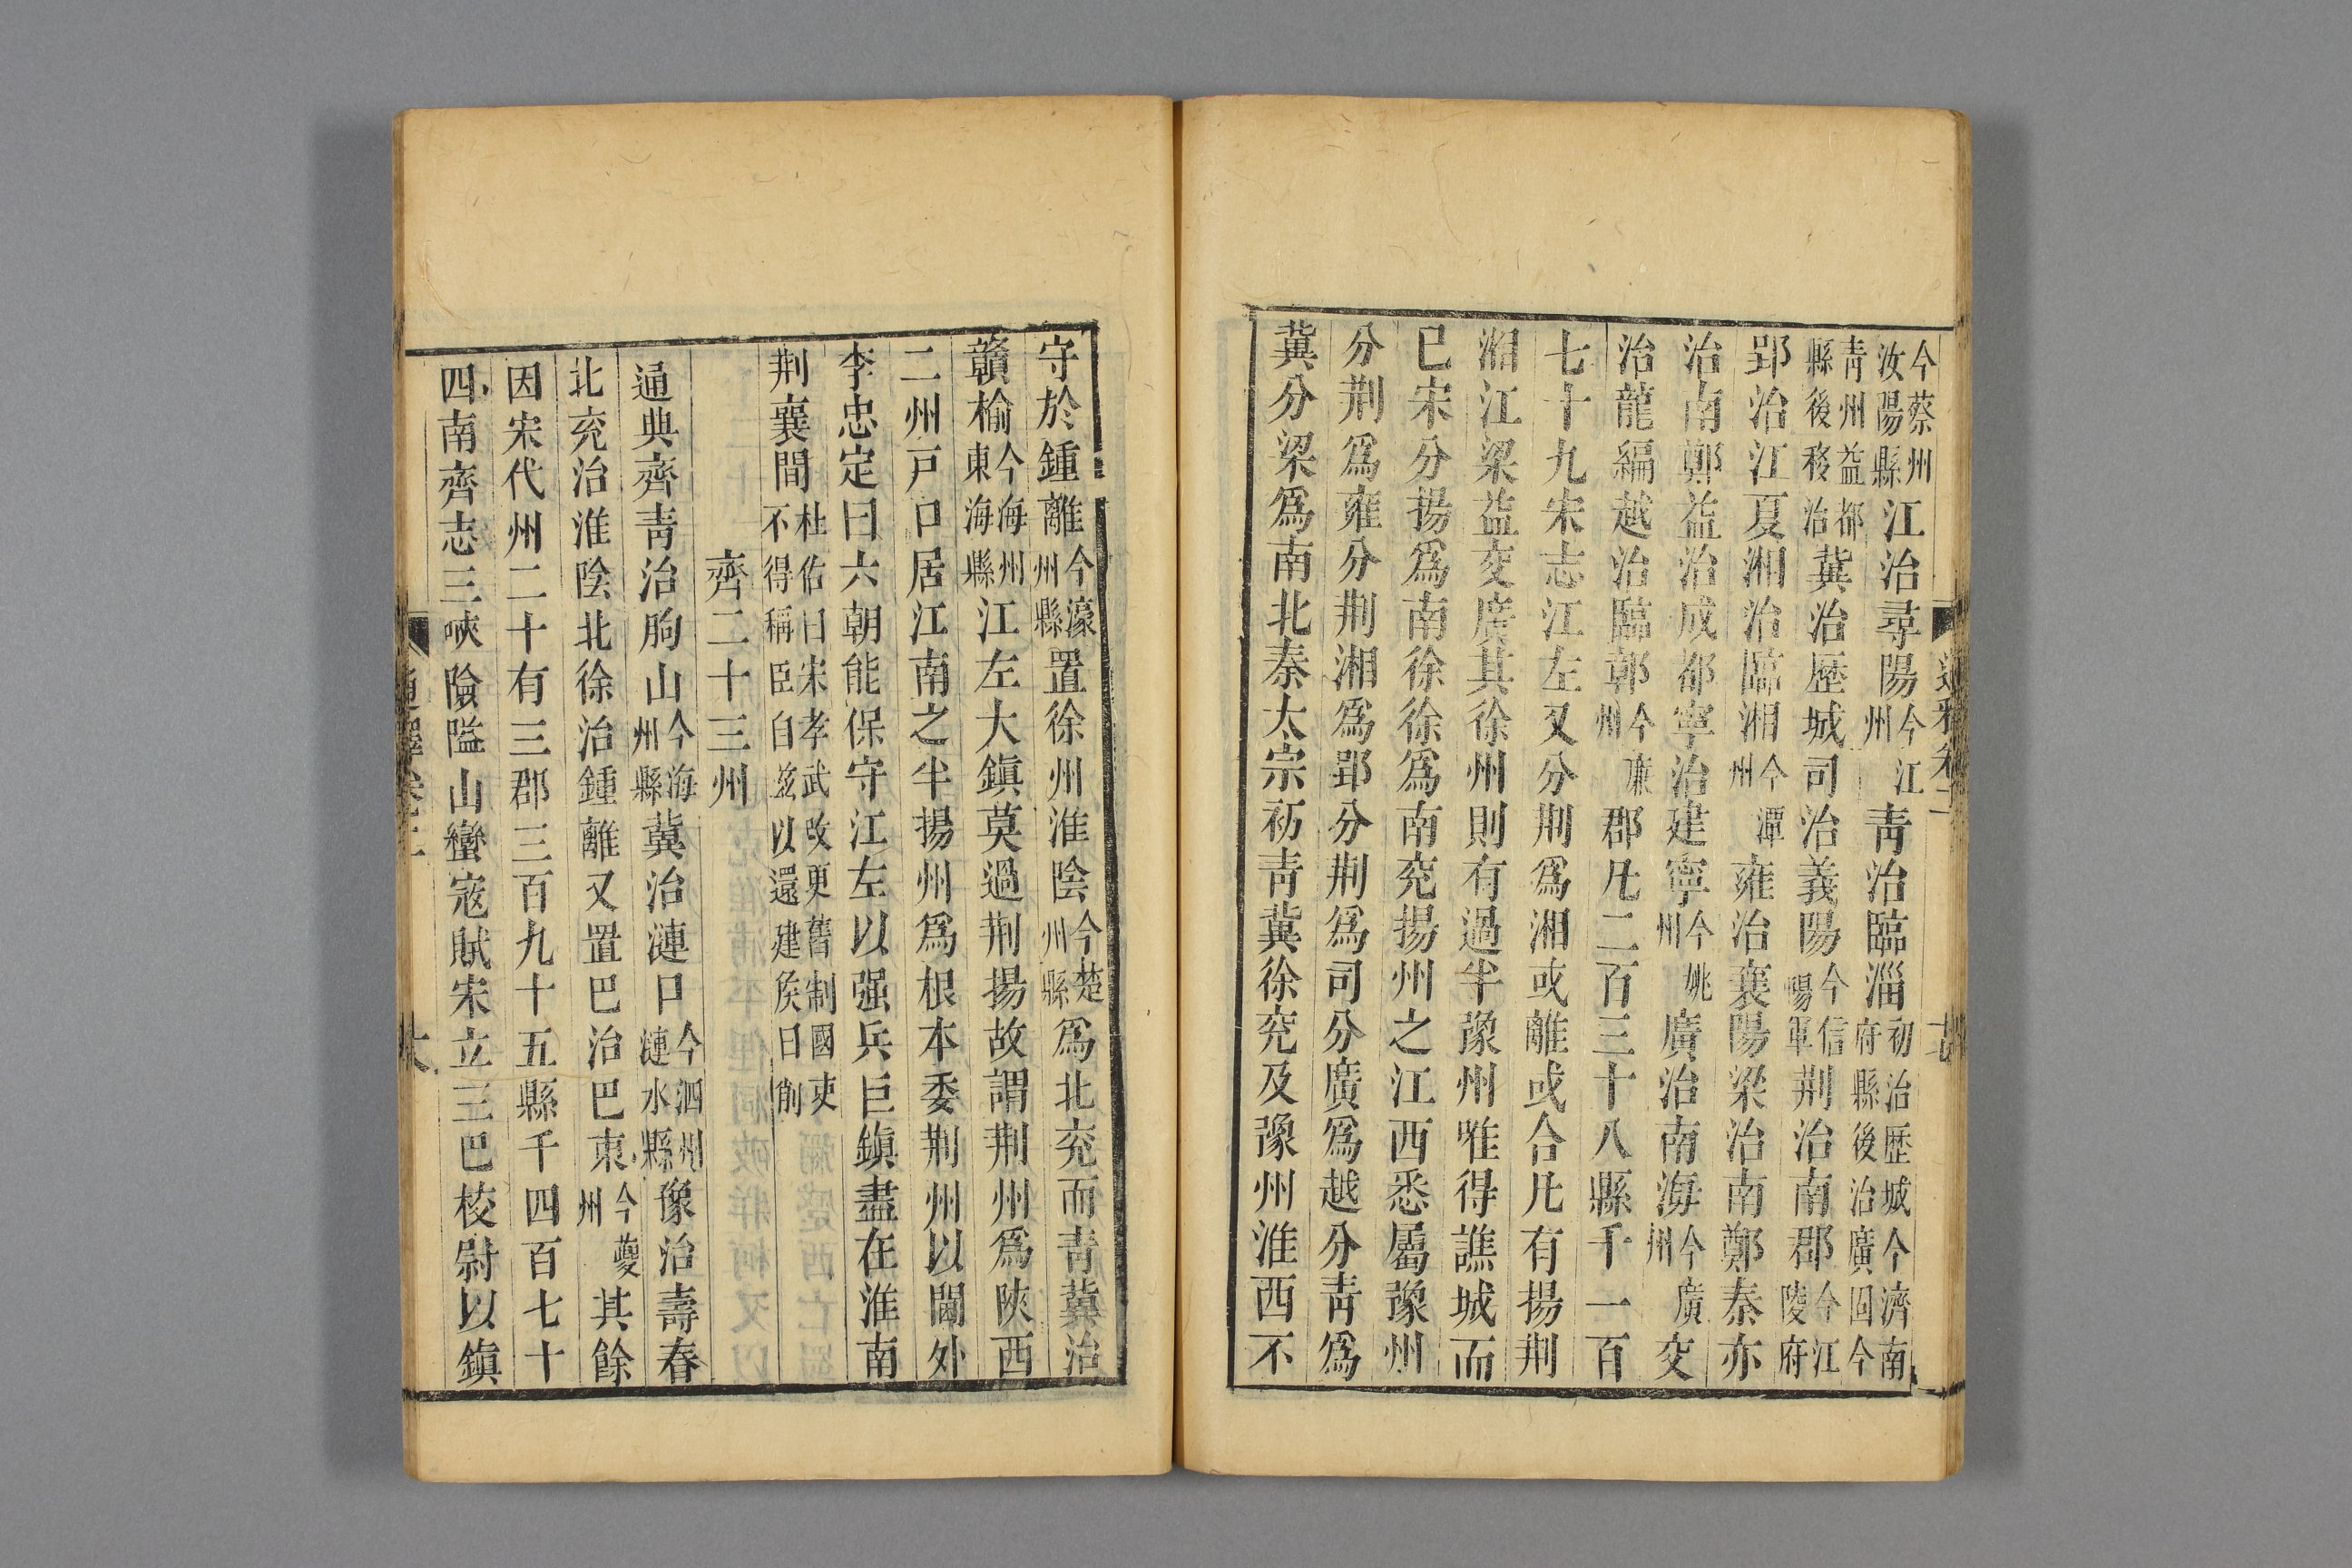 今蔡州汝陽縣江治尋陽今江州青治臨淄初治歷城今濟南府縣後治廣固今
青州益都縣後移治冀治歷城司治義陽今信陽軍荆治南郡今江陵府
郢治江夏湘治臨湘今潭州雍治襄陽梁治南鄭秦亦
治南鄭益治成都寧治建寧今姚州廣治南海今廣州交
治龍編越治臨鄣今廉州郡凡二百三十八縣千一百
七十九宋志江左又分荆爲湘或離或合凡有揚荆
湘江梁益交廣其徐州則有過半豫州唯得譙城而
已宋分揚爲南徐徐爲南兖揚州之江西悉屬豫州
分荆爲雍分荆湘爲郢分荆爲司分廣爲越分青爲
冀分梁爲南北秦太宗初青冀徐兖及豫州淮西不
守於鍾離今濠州縣置徐州淮陰今楚州縣爲北兖而青冀治
贛榆今海州東海縣江左大鎮莫過荆揚故謂荆州爲陝西
二州戸口居江南之半揚州爲根本委荆州以閫外
李忠定曰六朝能保守江左以强兵巨鎮盡在淮南
荆襄間杜佑曰宋孝武改更舊制國吏不得稱臣自兹以還建侯日削
齊二十三州
通典齊青治朐山今海州縣冀治漣口今泗州漣水縣豫治壽春
北兖治淮陰北徐治鍾離又置巴治巴東今夔州其餘
因宋代州二十有三郡三百九十五縣千四百七十
四南齊志三峽險隘山蠻寇賊宋立三巴校尉以鎮